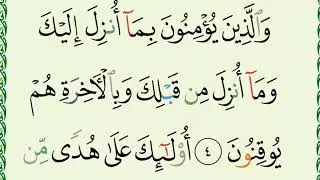 وَٱلَّذِينَ يُؤْمِنُونَ بِمَآ أُنزِلَ إِلَيْكَ
وَمَآ أُنزِلَ مِن قَبْلِكَ وَبِٱلْأَخِرَةِ هُمْ
يُوقِنُونَ ٤ أُوْلَـٰٓئِكَ عَلَىٰ هُدًى مِّن